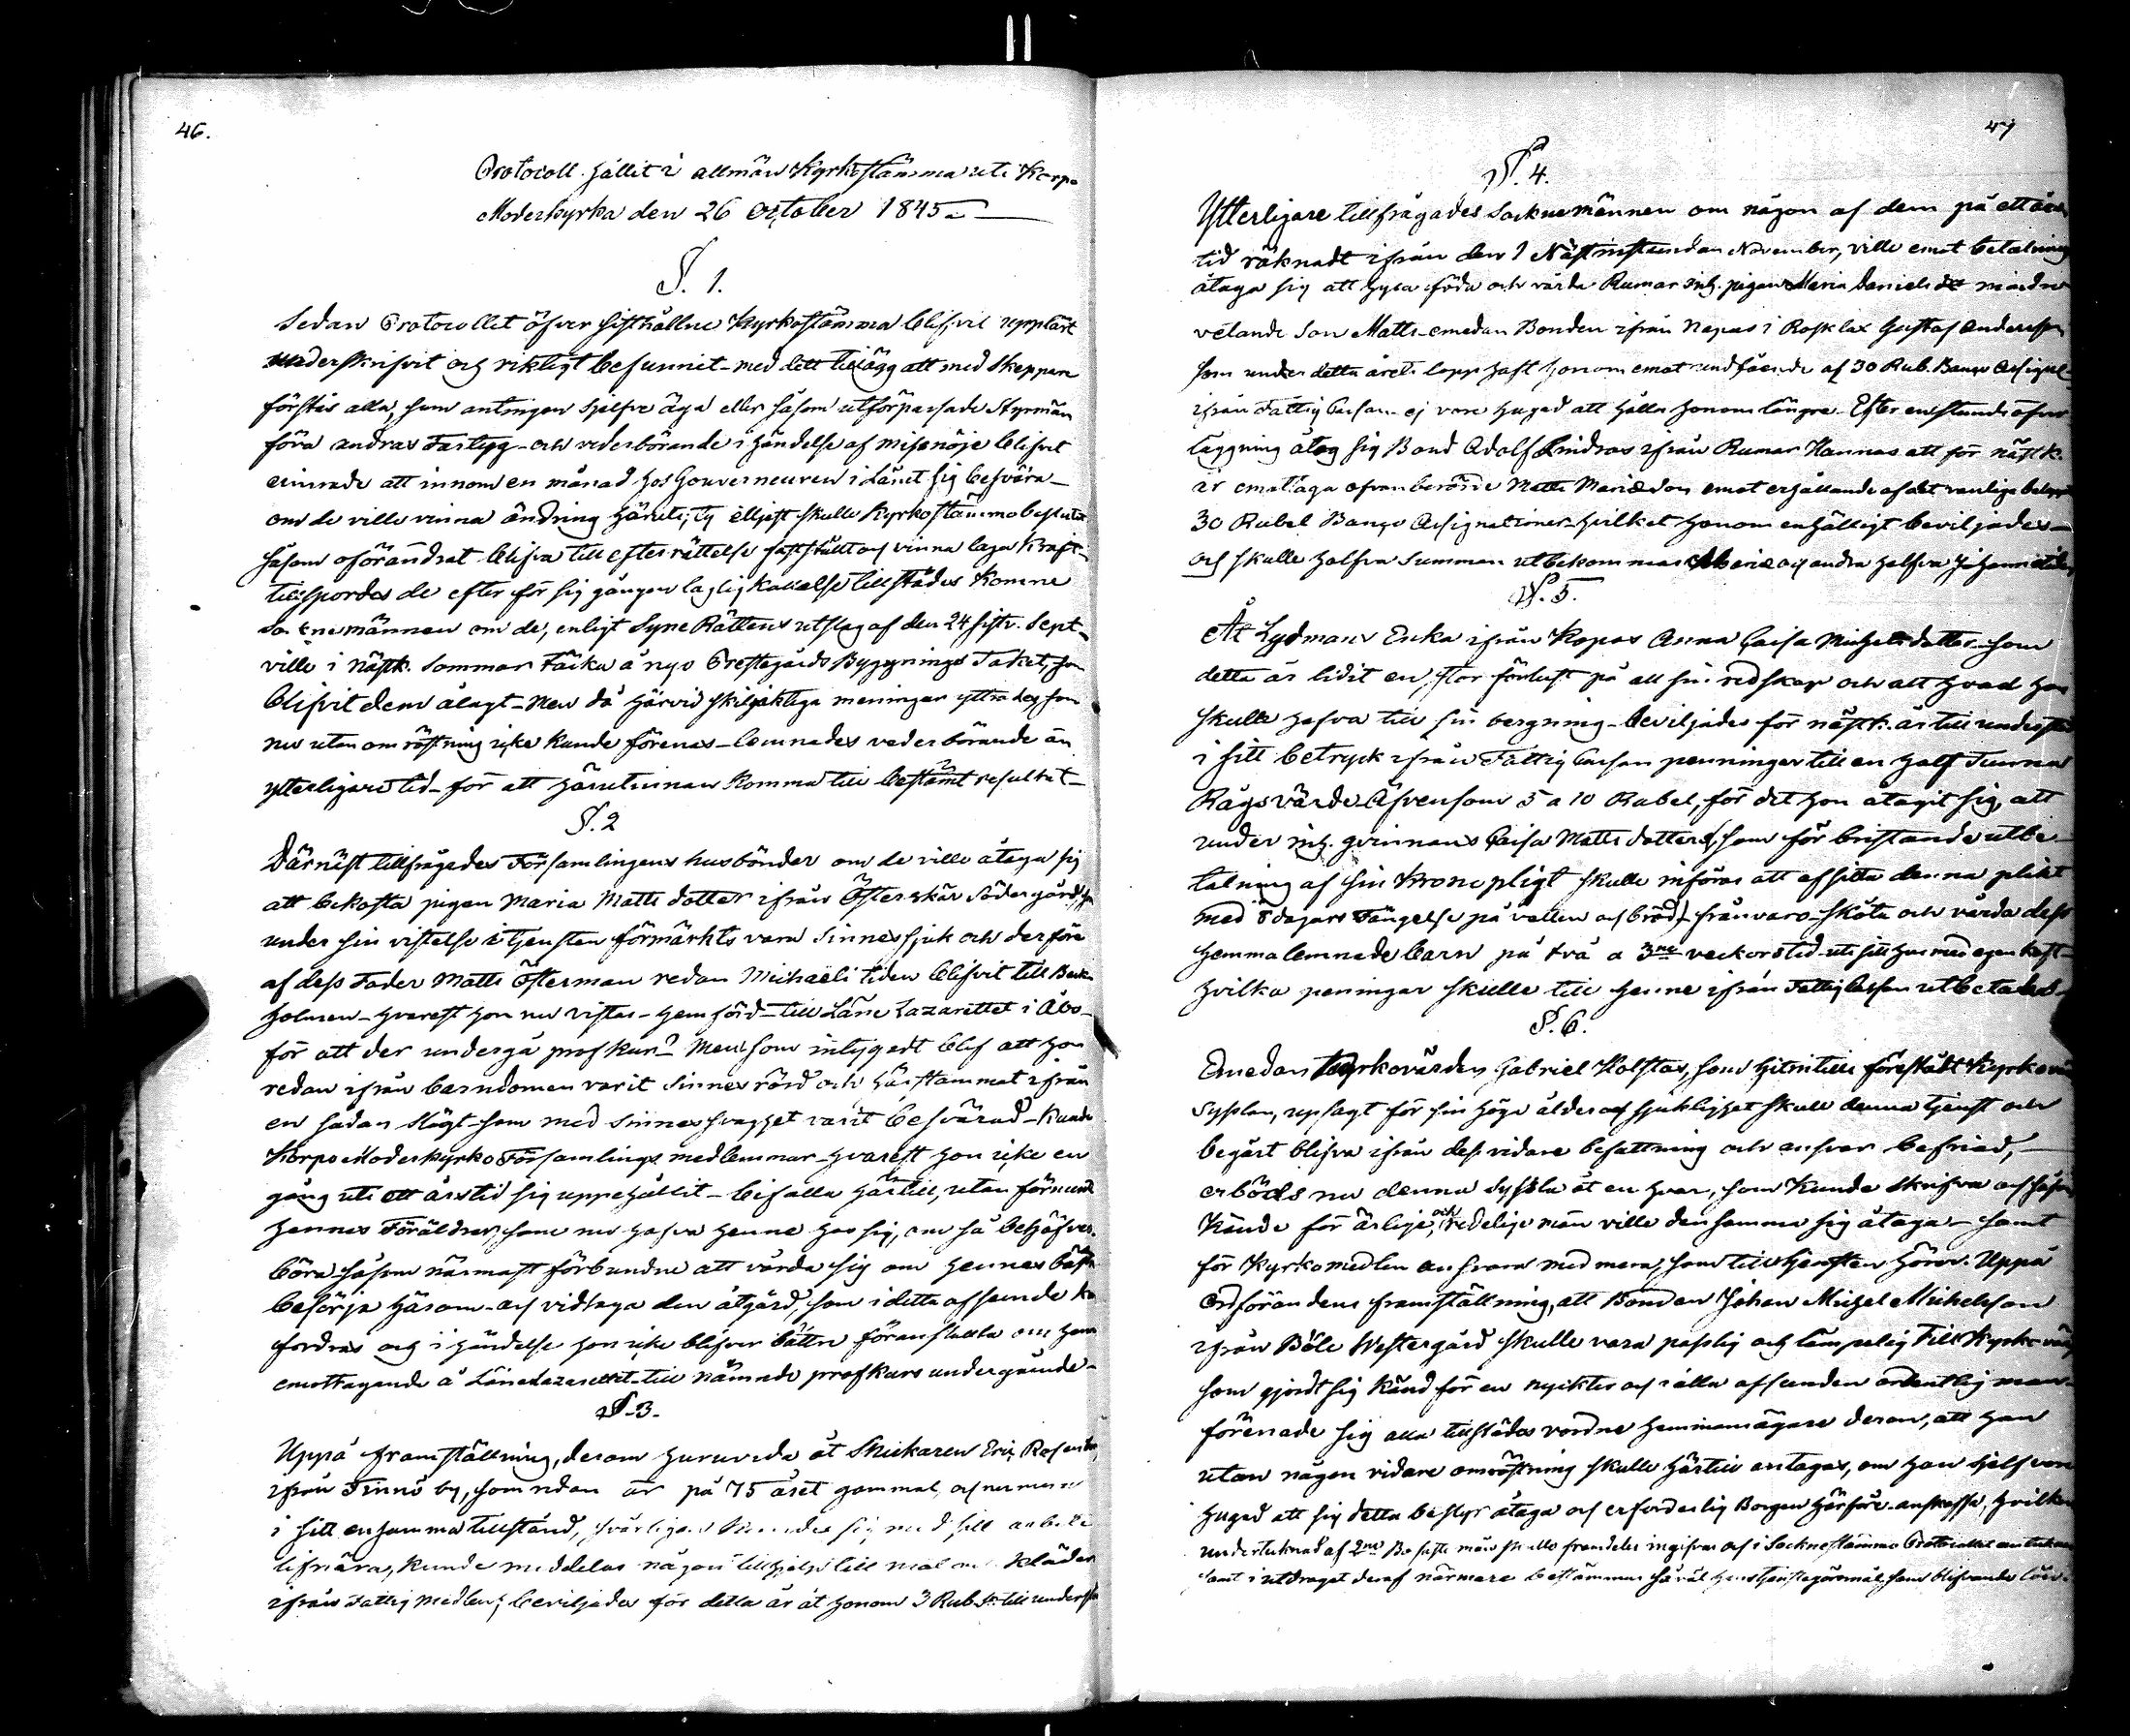 46.
Protocoll hållit i allmän Kyrkostämma uti Korpo
Moderkyrka den 26 October 1845.
§. 1.
Sedan Protocollet öfver sisthållne Kyrkostämma blifvit uppläst
underskrifvit och riktigt befunnit - med dett tillägg att med Skeppare
förstås alla, som antingen sjelfve äga eller såsom utförpassade Styrmän
föra andras Fartyg - och vederbörande i händelse af missnöje blifvit
erinrade att innom en månad hos Gouverneuren i Länet sig besvära -
om de ville vinna ändring häruti, ty elljest skulle Kyrkostämmobeslutet
såsom oförändrat blifva till efterrättelse fastställt och vinna laga Kraft -
tillspordes de efter för sig gången laglig kallelse tillstädes komne
Socknemännen om de, enligt Syne Rättens utslag af den 24 sistv. Sept.
ville i nästk. Sommar täcka å nyo Prestegårds Byggnings Taket, som
blifvit dem ålagt - Men då härvid skiljaktiga meningar yttrades som
nu utan omröstning icke kunde förenas - lemnades vederbörande än
ytterligare tid - för att härutinnan komma till bestämt resultat -
§. 2
Därnäst tillfrågades Församlingens husbönder om de ville åtaga sig
att bekosta pigan Maria Matts dotter ifrån Österskär Södergård, som
under sin vistelse i tjensten förmärkts vara Sinnessjuk och derföre
af dess Fader Matts Österman redan Michaëli tiden blifvit till
holmen - hvarest hon nu vistas - hemförd - till Läns Lazarettet i Åbo -
för att der undergå profkur? Men som intygadt blef att hon
redan ifrån barndomen varit Sinnesrörd och härstammat ifrån
en sådan Slägt - som med sinnessvaghet varit besvärad - kunde
Korpo Moderkyrko Församlings medlemmar - hvarest hon icke en
gång uti ett års tid sig uppehållit - bifalla härtill, utan förmente
hennes Föräldrar, som nu hafva henne hos sig, om så behöfves.
böra såsom närmast förbundne att vårda sig om hennes bästa
besörja härom - och vidtaga den åtgärd, som i detta afseende kan
fordras och i händelse hon icke blifver bättre föranstalta om hennes
emottagande å Länelazarettet - till nämnde profkurs undergående -
§. 3.
Uppå framställning, derom huruvida åt Snickaren Eric
ifrån Finnö by, som redan är på 75 året gammal, och numera
i sitt ensamma tillstånd, svårligen med sitt arbete
lifnära, kunde meddelas någon tillhjelp till mat och kläder
ifrån Fattig medlen; beviljades för detta år åt honom 3 Rub. Sr. till
47
§. 4.
Ytterligare tillfrågades Sockne männen om någon af dem på ett års
tid räknadt ifrån den 1 Nästinstundan November, ville emot betalning
åtaga sig att hysa föda och vårda Rumar inh. pigan Maria Daniels d:r mindre
vetande Son Matts - emedan Bonden ifrån Nepas i Rosklax Gustaf Andersson
som under detta årets lopp haft honom emot undfående af 30 Rub. Banco Assignat
ifrån Fattig Cassan - ej vore hugad att hålla honom längre - Efter en stunds öfver
läggning åtog sig Bond Adolf Lindros ifrån Rumar Hannas att för nästk.
år emottaga ofvanberörde Matts emot erhållande af det vanliga
30 Rubel Banco Assignationer - hvilket honom enhälligt beviljades -
och skulle halfva Summan utbekommas och andra halfva
§. 5.
Åt Lydmans Enka ifrån Kopas Anna Caisa Michels dotter - som
detta år lidit en stor förlust på all sin redskap och allt hvad hon
skulle hafva till sin bergning - beviljades för nästk. år till
i sitt betryck ifrån Fattig Cassan penningar till en half Tunna
Rågs värde Äfvensom 5 a 10 Rubel, för det hon åtagit sig, att
under inh. qvinnans Caisa Matts dotters (som för bristande utbe-
talning af sin Kronepligt skulle införas att afsitta denna plikt
med 8 dagars Fängelse på vatten och bröd) - frånvaro - sköta och vårda dess
hemma lemnade barn på två a 3:ne veckors tid - uti sitt hus med egen kost -
hvilka peningar skulle till henne ifrån Fattig Cassan utbetalas -
§. 6.
Emedan Kyrkovärden Gabriel Holstas, som hitintill förestådt Kyrkovärds
Sysslan, uppsagt för sin höga ålder och sjuklighet skull denna tjenst och
begärt blifva ifrån dess vidare befattning och ansvar befriad, -
erböds nu denna Syssla åt en hvar, som kunde skrifva och såsom
kände för ärlige, och redelige män ville densamma sig åtaga - samt
för Kyrkomedlen ansvara med mera, som till tjensten hörer. Uppå
Ordförandens framställning, att Bonden Johan Michel Michelsson
ifrån Böle Westergård skulle vara passlig och lämpelig till Kyrkovärd
som gjordt sig känd för en nyckter och i alla afseenden ordentlig man -
förenade sig alla tillstädes vordne hemmansägare derom, att han
utan någon vidare omröstning skulle härtill antagas, om han sjelf vore
hugad att sig detta bestyr åtaga och erforderlig Borgen härföre anskaffa, hvilken
undertecknad af 2:ne Bofaste män skulle framdeles ingifvas och i Sockne stämmo Protocollet
samt i utdraget deraf närmare bestämmas såväl hans tjenstgöromål, som blifvande lön.